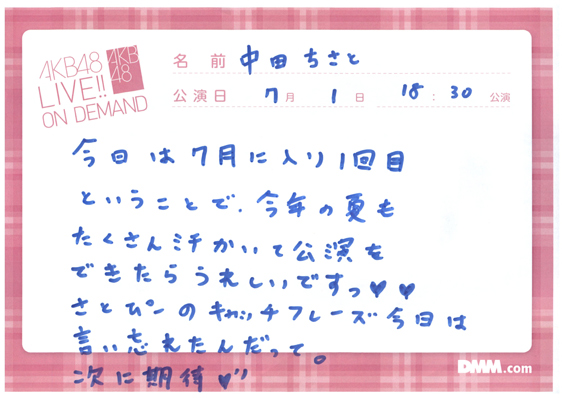 AKB48
LIVE!!
ON DEMAND
AKB
48
名前 中田ちさと
公演日 7月 1日 18:30 公演
今日は7月に入り1回目
ということで、今年の夏も
たくさん汗かいて公演も
できたらうれしいですっ♥♥
さとぴーのキャッチフレーズ今日は
言い忘れたんだって。
次に期待♥"
DMM.com